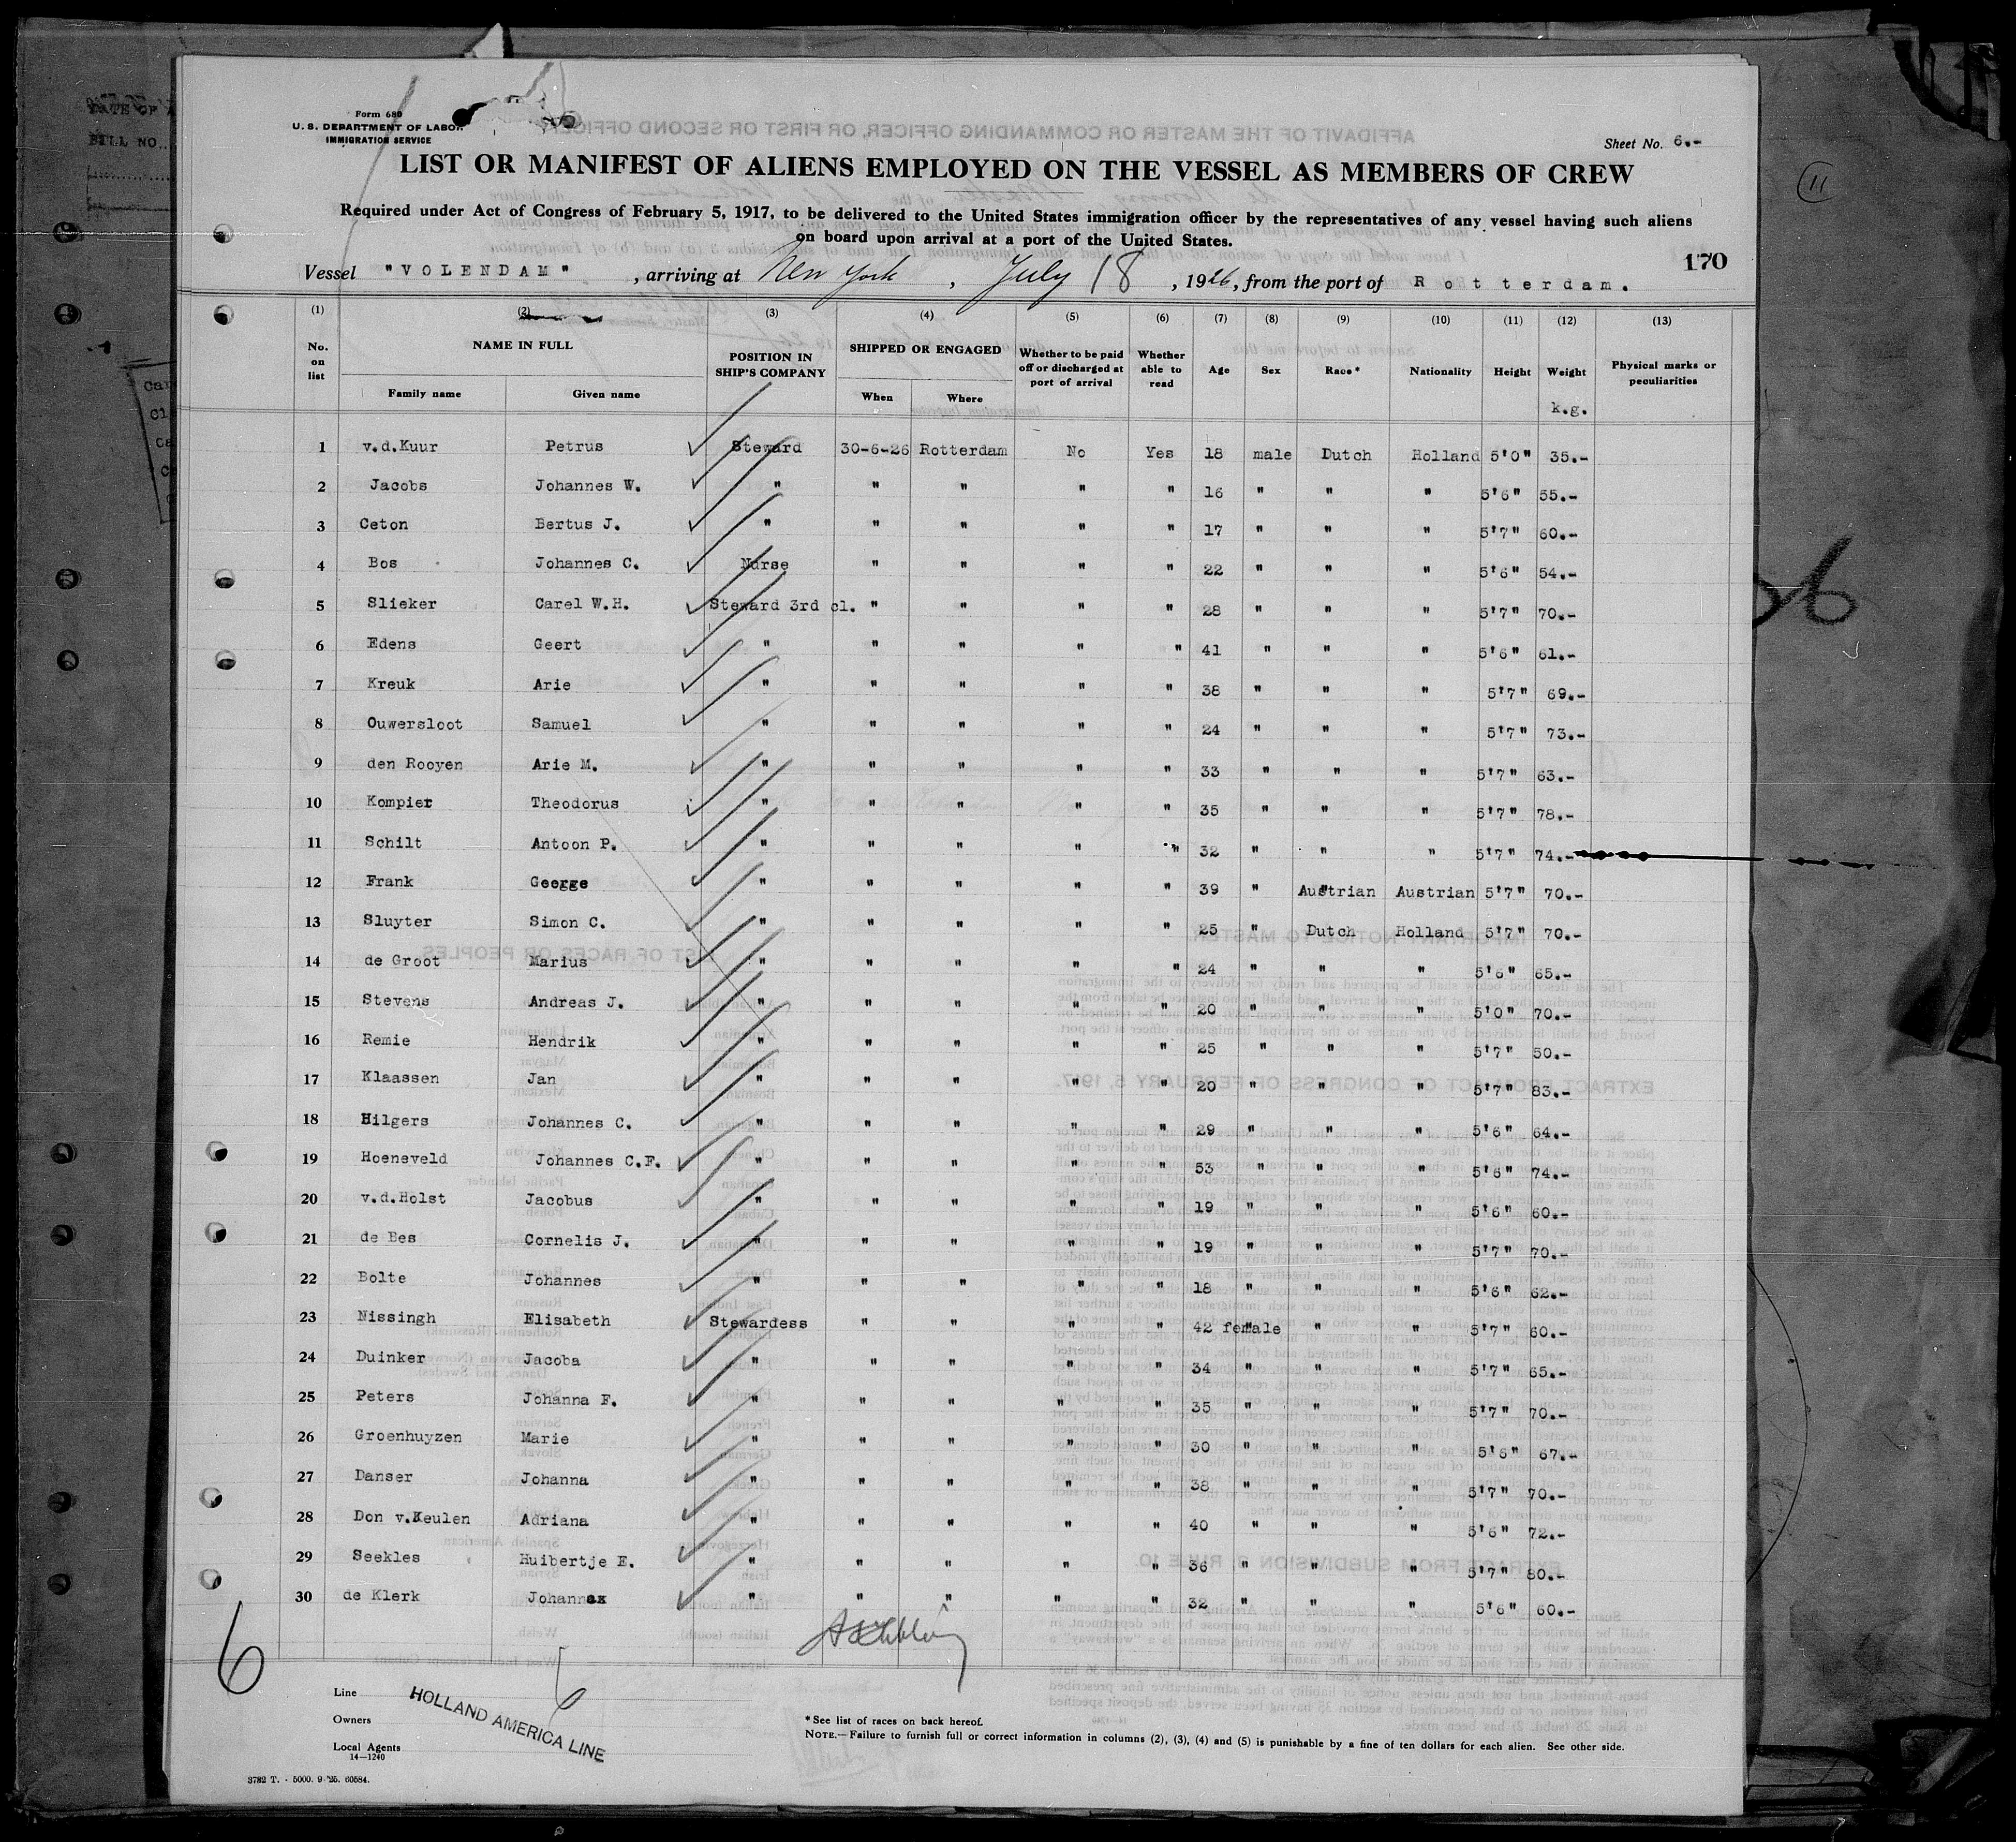 Form 680
U. S. DEPARTMENT OF LABOR
IMMIGRATION SERVICE
Sheet No. 6.-
LIST OR MANIFEST OF ALIENS EMPLOYED ON THE VESSEL AS MEMBERS OF CREW
Required under Act of Congress of February 5, 1917, to be delivered to the United States immigration officer by the representatives of any vessel having such aliens
on board upon arrival at a port of the United States.
11
170
Vessel "VOLENDAM" , arriving at New York , July 18 , 1926, from the port of Rotterdam.
(1) (2) (3) (4) (5) (6) (7) (8) (9) (10) (11) (12) (13)
No. on list NAME IN FULL Family name Given name POSITION IN SHIP'S COMPANY SHIPPED OR ENGAGED When Where Whether to be paid off or discharged at port of arrival Whether able to read Age Sex Race* Nationality Height Weight Physical marks or peculiarities
k.g.
1 v.d.Kuur Petrus Steward 30-6-26 Rotterdam No Yes 18 male Dutch Holland 5'0" 35.-
2 Jacobs Johannes W. " " " " " 16 " " " 5'6" 55.-
3 Ceton Bertus J. " " " " " 17 " " " 5'7" 60.-
4 Bos Johannes C. Nurse " " " " 22 " " " 5'6" 54.-
5 Slieker Carel W.H. Steward 3rd cl. " " " " 28 " " " 5'7" 70.-
6 Edens Geert " " " " " 41 " " " 5'6" 61.-
7 Kreuk Arie " " " " " 38 " " " 5'7" 69.-
8 Ouwersloot Samuel " " " " " 24 " " " 5'7" 73.-
9 den Rooyen Arie M. " " " " " 33 " " " 5'7" 63.-
10 Kompier Theodorus " " " " " 35 " " " 5'7" 78.-
11 Schilt Antoon P. " " " " " 32 " " " 5'7" 74.-
12 Frank George " " " " " 39 " Austrian Austrian 5'7" 70.-
13 Sluyter Simon C. " " " " " 25 " Dutch Holland 5'7" 70.-
14 de Groot Marius " " " " " 24 " " " 5'6" 65.-
15 Stevens Andreas J. " " " " " 20 " " " 5'0" 70.-
16 Remie Hendrik " " " " " 25 " " " 5'7" 50.-
17 Klaassen Jan " " " " " 20 " " " 5'7" 83.-
18 Hilgers Johannes C. " " " " " 29 " " " 5'6" 64.-
19 Hoeneveld Johannes C.F. " " " " " 53 " " " 5'6" 74.-
20 v.d.Holst Jacobus " " " " " 19 " " " 5'6" 60.-
21 de Bes Cornelis J. " " " " " 19 " " " 5'7" 70.-
22 Bolte Johannes " " " " " 18 " " " 5'6" 62.-
23 Nissingh Elisabeth Stewardess " " " " 42 female " " 5'7" 60.-
24 Duinker Jacoba " " " " " 34 " " " 5'7" 65.-
25 Peters Johanna F. " " " " " 35 " " " 5'7" 70.-
26 Groenhuyzen Marie " " " " " 30 " " " 5'6" 67.-
27 Danser Johanna " " " " " 38 " " " 5'7" 70.-
28 Don v.Keulen Adriana " " " " " 40 " " " 5'6" 72.-
29 Seekles Huibertje E. " " " " " 36 " " " 5'7" 80.-
30 de Klerk Johanna " " " " " 32 " " " 5'6" 60.-
6
6
Line
HOLLAND AMERICA LINE
Owners
Local Agents
14—1240
*See list of races on back hereof.
NOTE.—Failure to furnish full or correct information in columns (2), (3), (4) and (5) is punishable by a fine of ten dollars for each alien. See other side.
3782 T. - 5000. 9-'25. 60584.